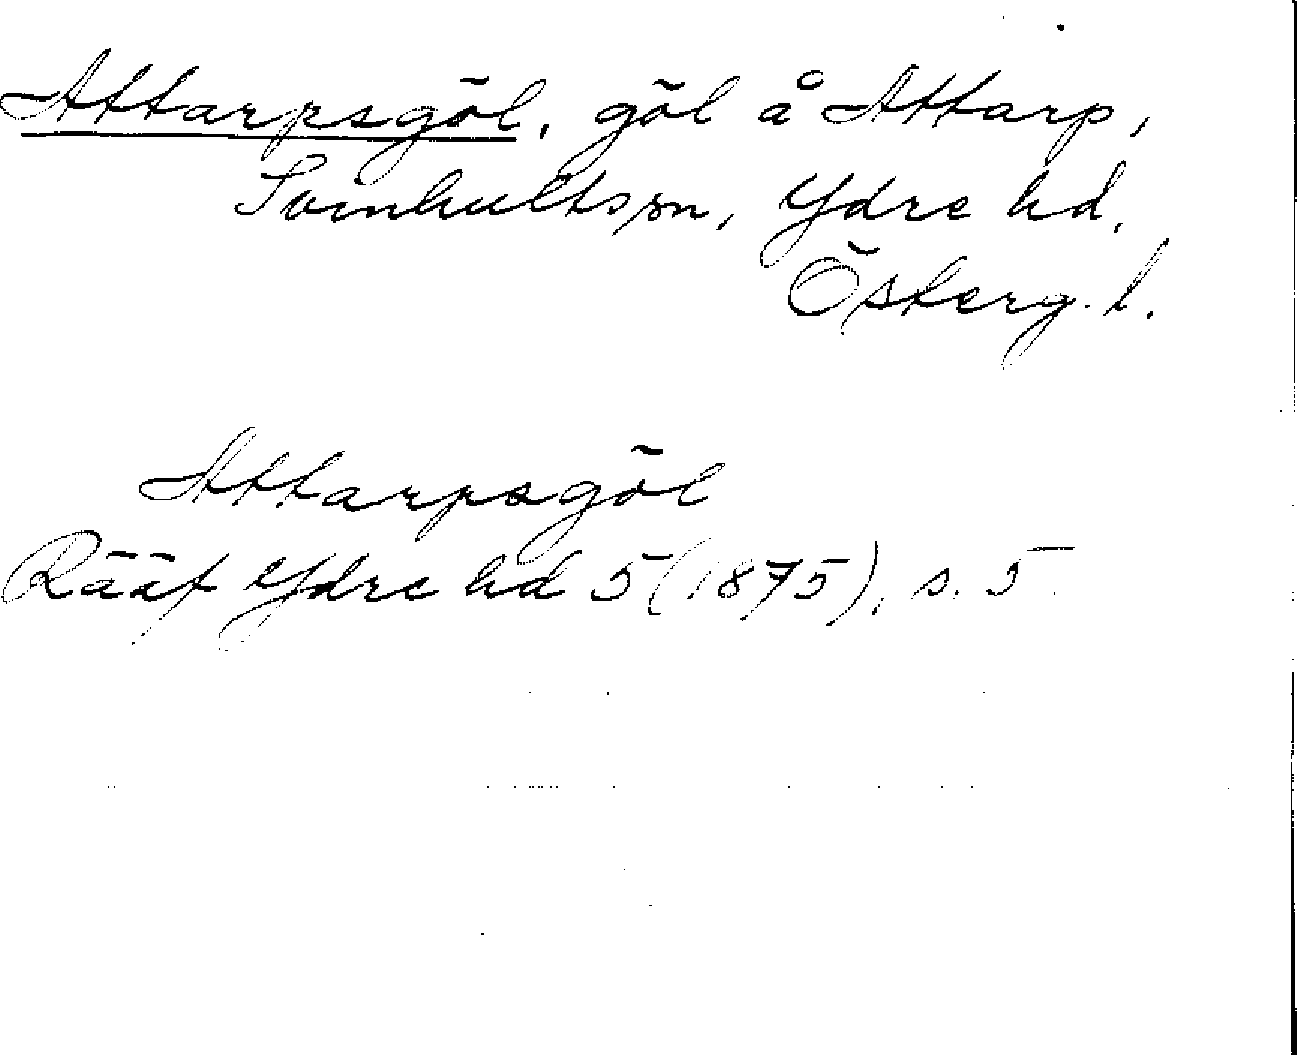 Attarpsgöl, göl å Attarp,
Svinhults sn, Ydre hd,
Österg. l.
Attarpsgöl
Rääf Ydre hd 5 (1875), s. 5